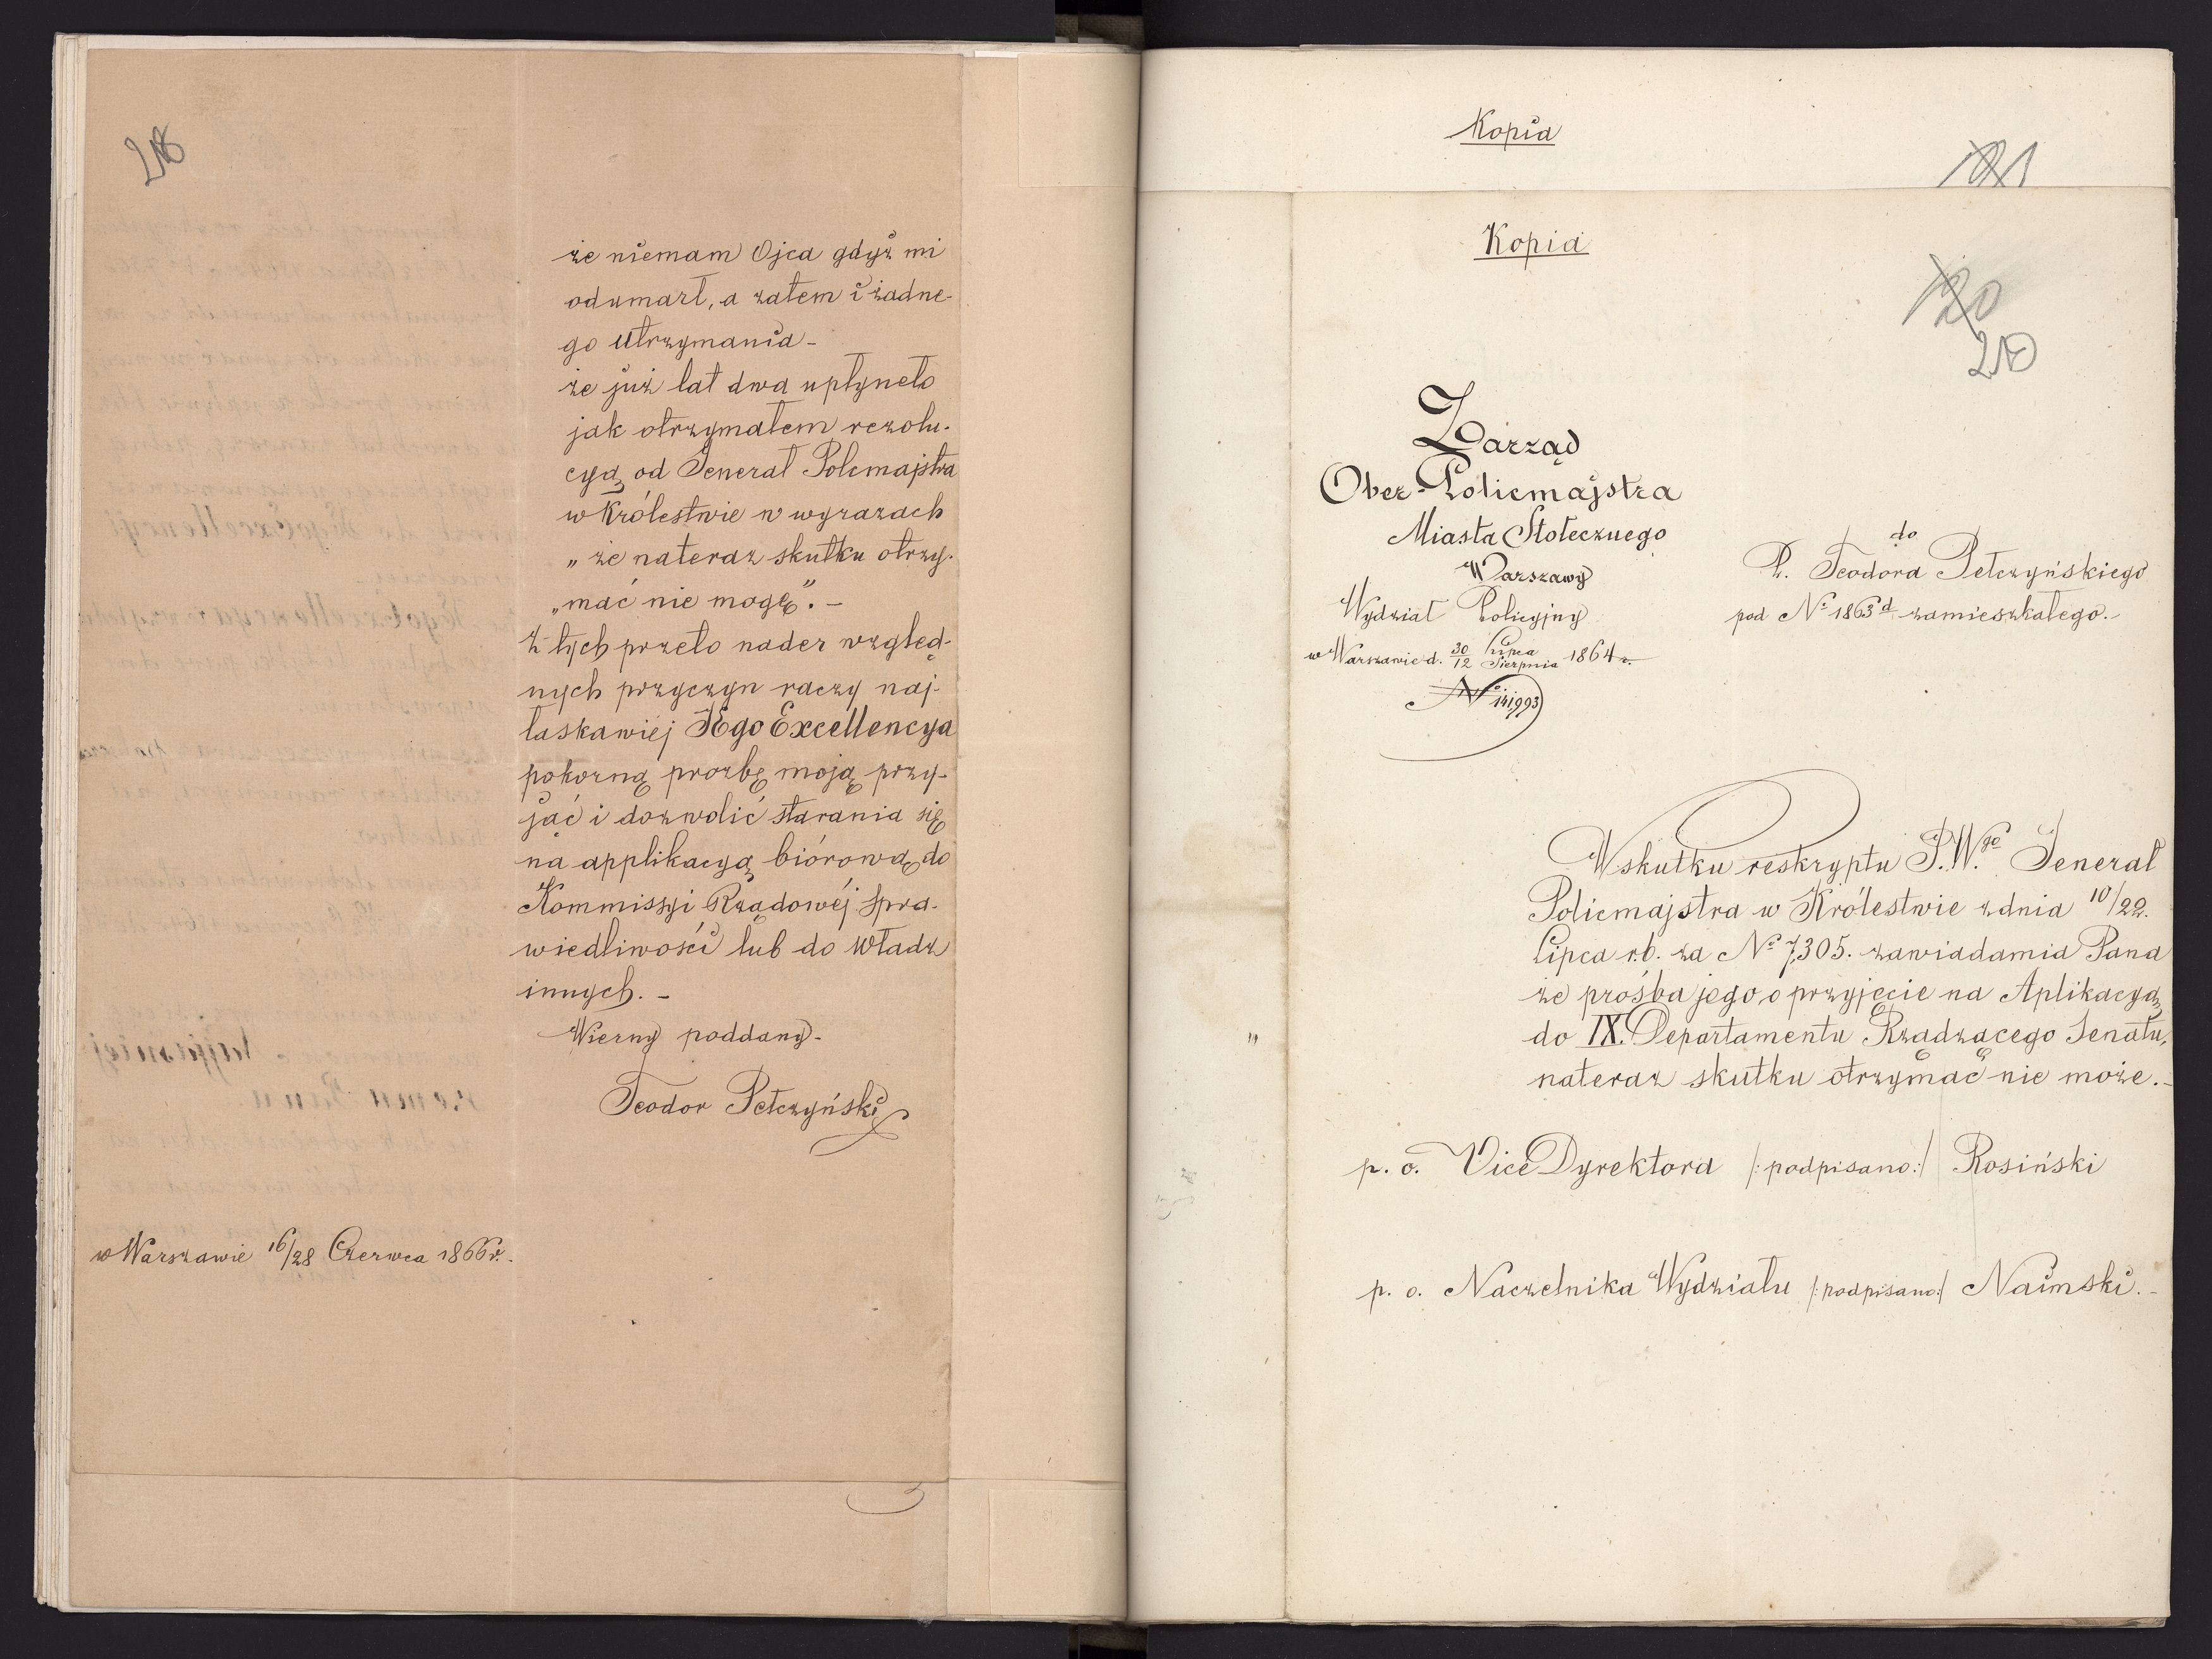 że niemam Ojca gdyż mi
odumarł, a zatem i żadne-
go utrzymania -
że już lat dwa upłyneło
jak otrzymałem rezolu-
cyą od Jenerał Polcmajstra
w Królestwie w wyrazach
„ że nateraz skutku otrzy-
„mać nie mogę”. -
Z tych przeto nader względ-
nych przyczyn raczy naj-
łaskawiej JEgo Excellencya
pokorną prozbę moją przy-
jąć i dozwolić starania się
na applikacyą biórową do
Kommissyi Rządowéj Spra-
wiedliwości lub do Władz
innych. -
Wierny poddany -
Teodor Pełczyński
w Warszawie 16/28 Czerwca 1866 r. -
Kopia
Kopia
20
Zarząd
Ober-Policmajstra
Miasta Stołecznego
Warszawy
Wydział Policyjny
w Warszawie d. 30/12 Lipca/Sierpnia 1864 r.
No 141,993
do
P. Teodora Pełczyńskiego
pod No 1863d zamieszkałego. -
Wskutku reskryptu J.W.go Jenerał
Policmajstra w Królestwie z dnia 10/22.
Lipca r.b. za No 7,305. zawiadamia Pana
że prośba jego, o przyjęcie na Aplikacyą
do IX. Departamentu Rządzącego Senatu,
nateraz skutku otrzymać nie może. -
p. o. Vice Dyrektora /:podpisano:/ Rosiński
p. o. Naczelnika Wydziału /:podpisano:/ Naimski. -